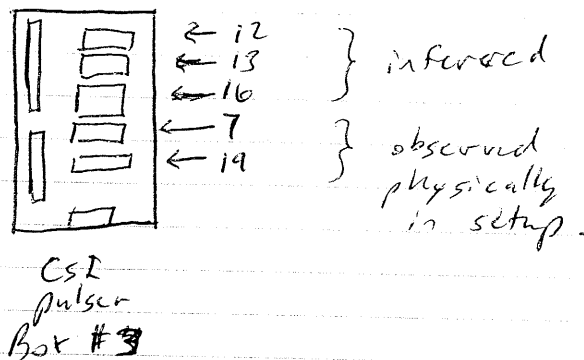 ← 12
← 13
← 16
← 7
← 19
inferred
observed
physically
in setup.
CsI
pulser
Box #3